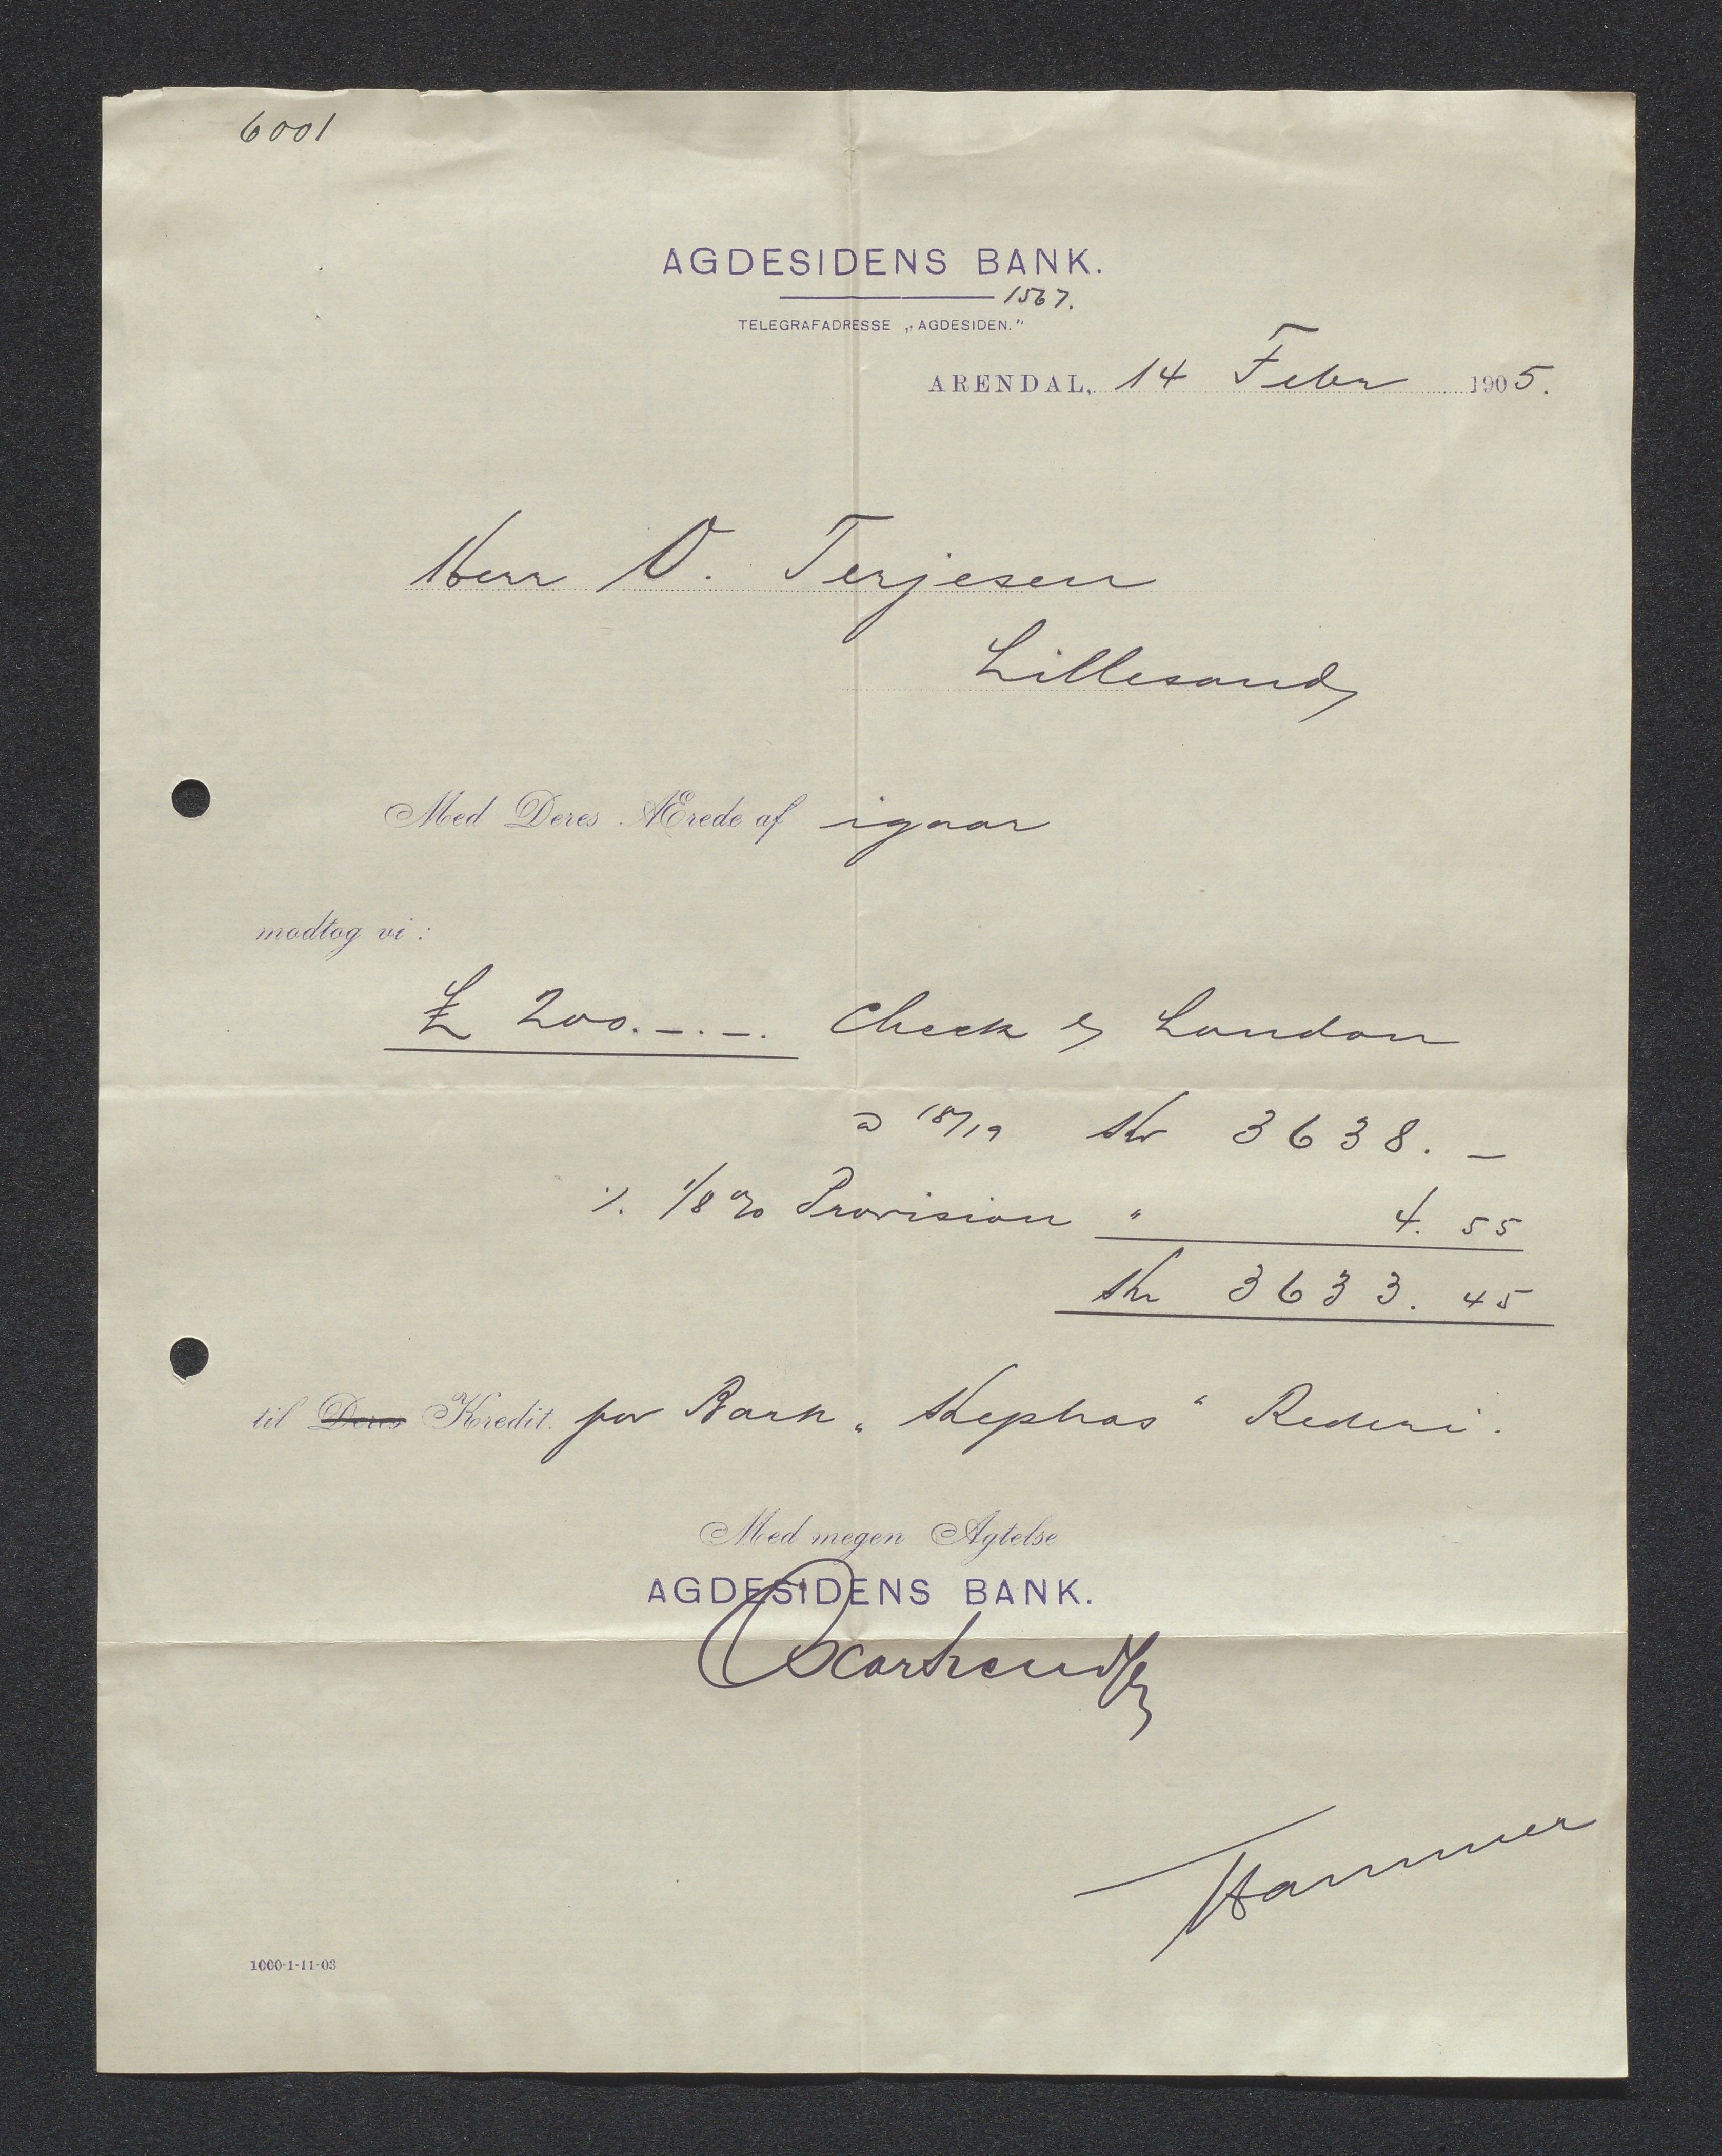 6001
AGDESIDENS BANK.
1567.
TELEGRAFADRESSE „AGDESIDEN."
ARENDAL, 14 Febr 1905.
Herr O. Terjesen
Lillesand
Med Deres Ærede af igaar
modtog vi :
£ 200.-.-. Check London
a 18/19 Kr 3638. -
⁒ 1/8 % Provision " 4. 55
Kr 3633. 45
til Deres Kredit. for Bark „Kephas" Rederi.
Med megen Agtelse
AGDESIDENS BANK.
Hammer
1000-1-11-03